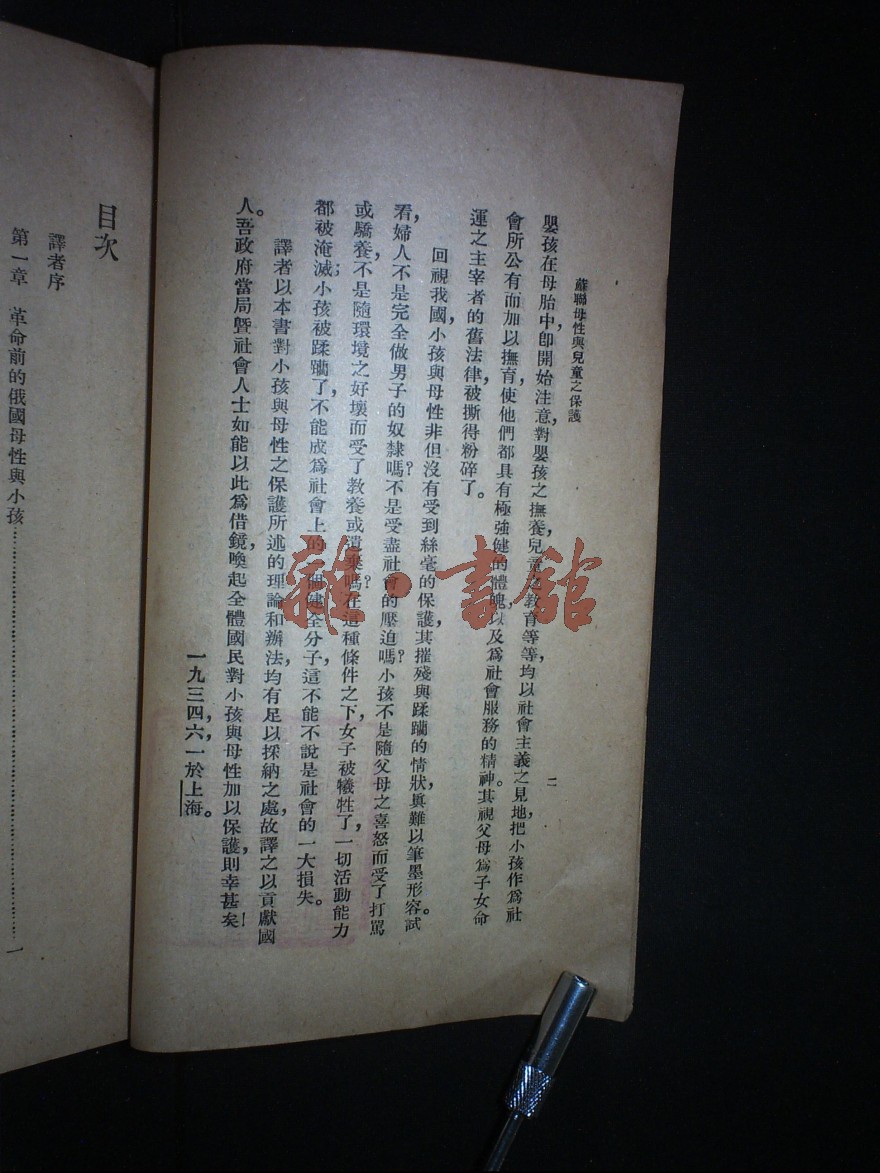 蘇聯母性與兒童之保護
二
嬰孩在母胎中,卽開始注意,對嬰孩之撫養,兒童之教育等等,均以社會主義之見地,把小孩作爲社
會所公有而加以撫育,使他們都具有極強健的體魄,以及爲社會服務的精神。其視父母爲子女命
運之主宰者的舊法律,被撕得粉碎了。
回視我國,小孩與母性非但沒有受到絲毫的保護,其摧殘與蹂躪的情狀,眞難以筆墨形容。試
看,婦人不是完全做男子的奴隸嗎?不是受盡社會的壓迫嗎?小孩不是隨父母之喜怒而受了打駡
或驕養,不是隨環境之好壞而受了教養或遺棄嗎?在這種條件之下,女子被犧牲了,一切活動能力
都被淹滅;小孩被蹂躪了,不能成爲社會上的一個健全分子,這不能不說是社會的一大損失。
譯者以本書對小孩與母性之保護所述的理論和辦法,均有足以採納之處,故譯之以貢獻國
人。吾政府當局曁社會人士如能以此爲借鏡,喚起全體國民對小孩與母性加以保護,則幸甚矣!
一九三四,六,一於上海。
目次
譯者序
第一章 革命前的俄國母性與小孩……………………一
雜·書館